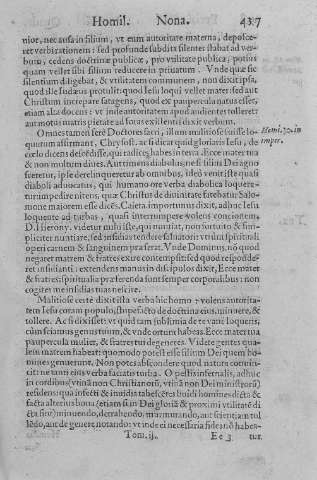 Homil. Nona. 437
nior, nec ausa in filium, vt eum autoritate materna, depolce-
ret verbis rationem: sed profunde subdita silenter stabat ad ver-
bum, cedens doctrinæ publicæ, pro vtilitate publica, potius
quam vellet sibi filium reducere in priuatum. Vnde quæ sic
silentium diligebat, & vtilitatem communem, non dixit ipsa,
quod ille suadeus protulit: quod Iesu loqui vellet mater: sed aut
Christum increpare satagens, quod ex paupercula natus esset,
etiam alta doceus: vt inde autoritatem apud audientes tolleret:
aut motus matris pietate ad foras exilienti dixit verbum.
Omnes tamen ferè Doctores sacri, illum maliuolè fuisse lo-
quutum affirmant. Chrysost. ac si dicat quid gloriaris Iesu, de
cœlo dicens descēdisse, qui radices habes in terra. Ecce mater tua
& non multum dives. Aut timens diabolus, ne si filius Dei agno
sceretur, ipse derelinqueretur ab omnibus, ideò venit iste quasi
diaboli aduocatus, qui humano ore verba diabolica loquere-
tur impedire nitens, quæ Christus de diuinitate fatebatur Salo-
mone maiorem esse dices. Caiera. importunus dixit, adhuc Iesu
loquente ad turbas, quasi interrumpere volens concionem.
D. Hierony. videtur mihi iste, qui nuntiat, non fortuito & sim-
pliciter nuntiare, sed insidias tendere saluatori: vtrum spirituali
operi carnem & sanguinem præferat. Vnde Dominus, nō quod
negaret matrem & fratres exire contempsit: sed quod responde-
ret insidianti: extendens manus in discipulos dixit, Ecce mater
& fratres: spiritualia præferenda sunt semper corporalibus: non
cogites me insidias tuas nescire.
Malitiose certè dixit ista verba hic homo: volens autoritа-
tem Iesu coram populo, stupefacto de doctrina eius, minuere, &
tollere. Ac si dixisset: vt quid tam sublimia de te vane loqueris,
cum sciamus genus tuum, & vnde ortum habeas. Ecce mater tua
paupercula mulier, & fratres tui degeneres. Videte gentes qua-
lem matrem habeat: quomodo potest esse filium Dei quem ho-
mines genuerunt. Non potes abscondere quod natura constri-
xit: ne tantum eius verba faciatō turba. O pestis infernalis, adhuc
in cordibus (vtinā non Christianorū, vtinā non Dei ministrorū)
residens: qua infecti & inuidia tabefactes huidi homines dicta &
facta alterius bona (etiam si in Dei gloriā & proximi vtilitatē di
cta sint) minuendo, detrahendo, murmurando, aut scientiam tol-
lēdo, aut de genere notando: vt inde ei necessaria fides nō habea-
Tom. ij. Ee 3 tur.
Homi. 30. in
imper.